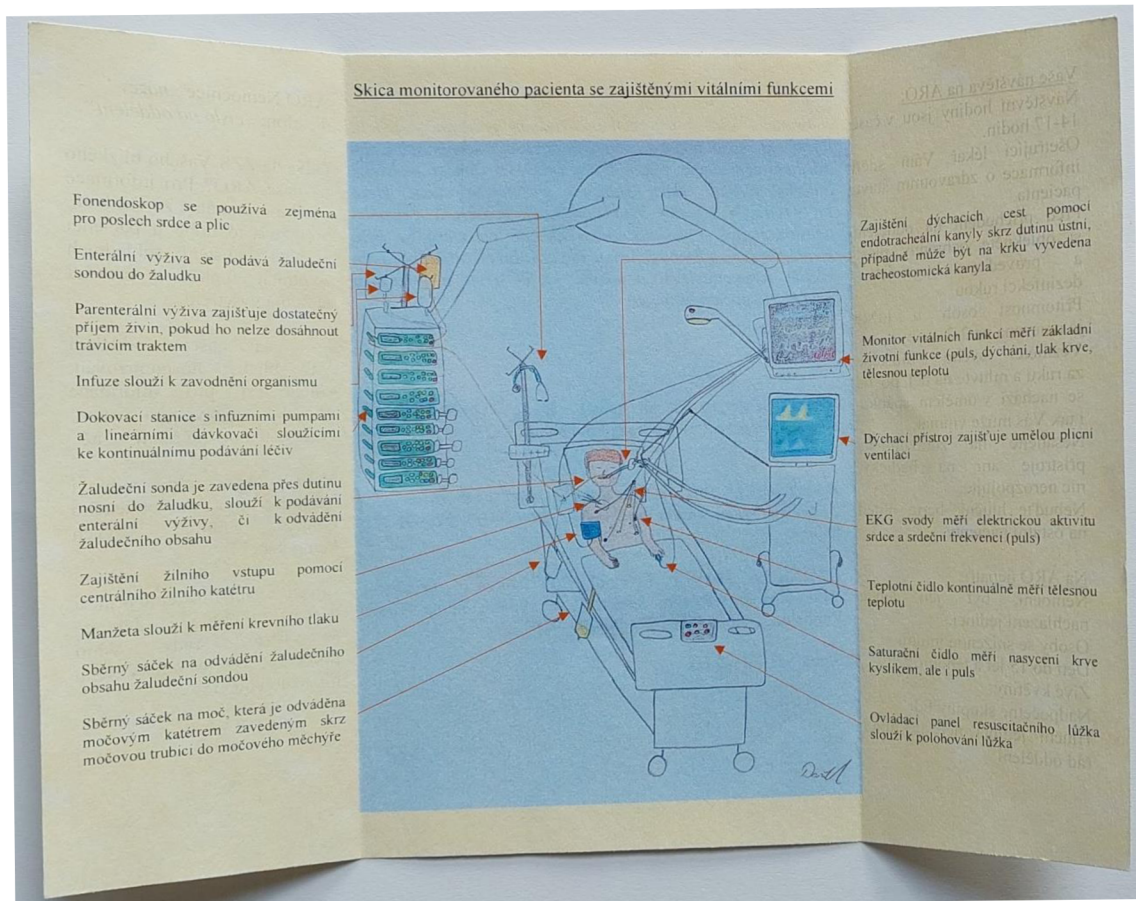 Skica monitorovaného pacienta se zajištěnými vitálními funkcemi
Fonendoskop se používá zejména
pro poslech srdce a plic
Enterální výživa se podává žaludeční
sondou do žaludku
Parenterální výživa zajišťuje dostatečný
příjem živin, pokud ho nelze dosáhnout
trávicím traktem
Infuze slouží k zavodnění organismu
Dokovací stanice s infuzními pumpami
a lineárními dávkovači sloužícími
ke kontinuálnímu podávání léčiv
Žaludeční sonda je zavedena přes dutinu
nosní do žaludku, slouží k podávání
enterální výživy, či k odvádění
žaludečního obsahu
Zajištění žilního vstupu pomocí
centrálního žilního katétru
Manžeta slouží k měření krevního tlaku
Sběrný sáček na odvádění žaludečního
obsahu žaludeční sondou
Sběrný sáček na moč, která je odváděna
močovým katétrem zavedeným skrz
močovou trubici do močového měchýře
Zajištění dýchacích cest pomocí
endotracheální kanyly skrz dutinu ústní,
případně může být na krku vyvedena
tracheostomická kanyla
Monitor vitálních funkcí měří základní
životní funkce (puls, dýchání, tlak krve,
tělesnou teplotu
Dýchací přístroj zajišťuje umělou plicní
ventilaci
EKG svody měří elektrickou aktivitu
srdce a srdeční frekvenci (puls)
Teplotní čidlo kontinuálně měří tělesnou
teplotu
Saturační čidlo měří nasycení krve
kyslíkem, ale i puls
Ovládací panel resuscitačního lůžka
slouží k polohování lůžka